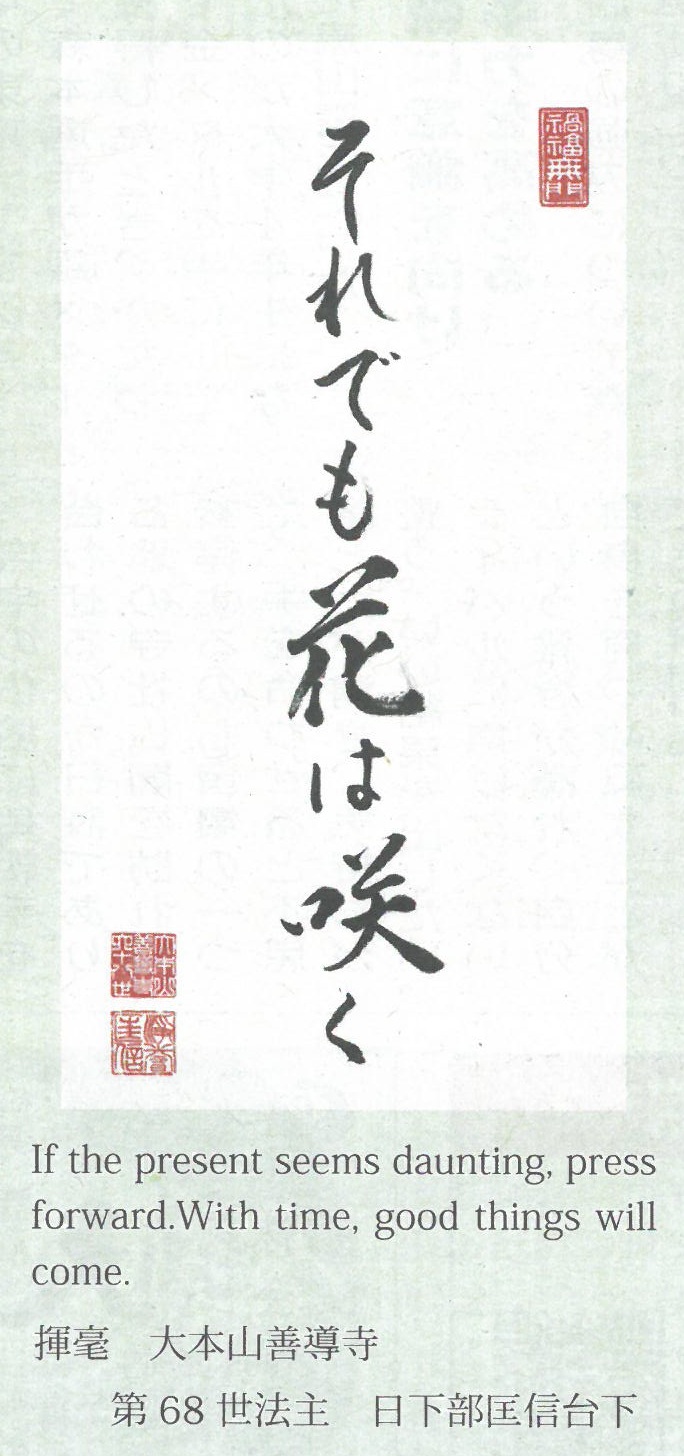 禍福無門
それでも花は咲く
If the present seems daunting, press
forward.With time, good things will
come.
揮毫　大本山善導寺
第68世法主　日下部匡信台下